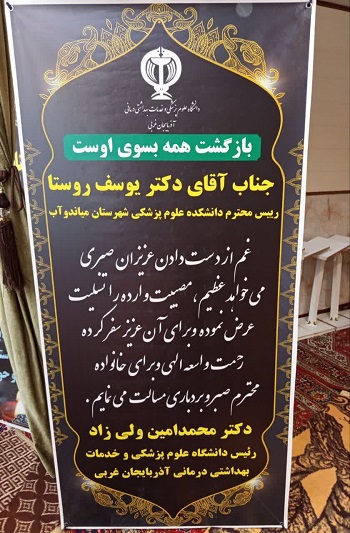 دانشگاه علوم پزشکی و خدمات بهداشتی درمانی
آذربایجان غربی
بازگشت همه بسوی اوست
جناب آقای دکتر یوسف روستا
رییس محترم دانشکده علوم پزشکی شهرستان میاندوآب
غم از دست دادن عزیزان صبری
می خواهد عظیم ، مصیبت وارده را تسلیت
عرض نموده و برای آن عزیز سفر کرده
رحمت واسعه الهی و برای خانواده
محترم صبر و بردباری مسالت می نمایم .
دکتر محمدامین ولی زاد
رئیس دانشگاه علوم پزشکی و خدمات
بهداشتی درمانی آذربایجان غربی